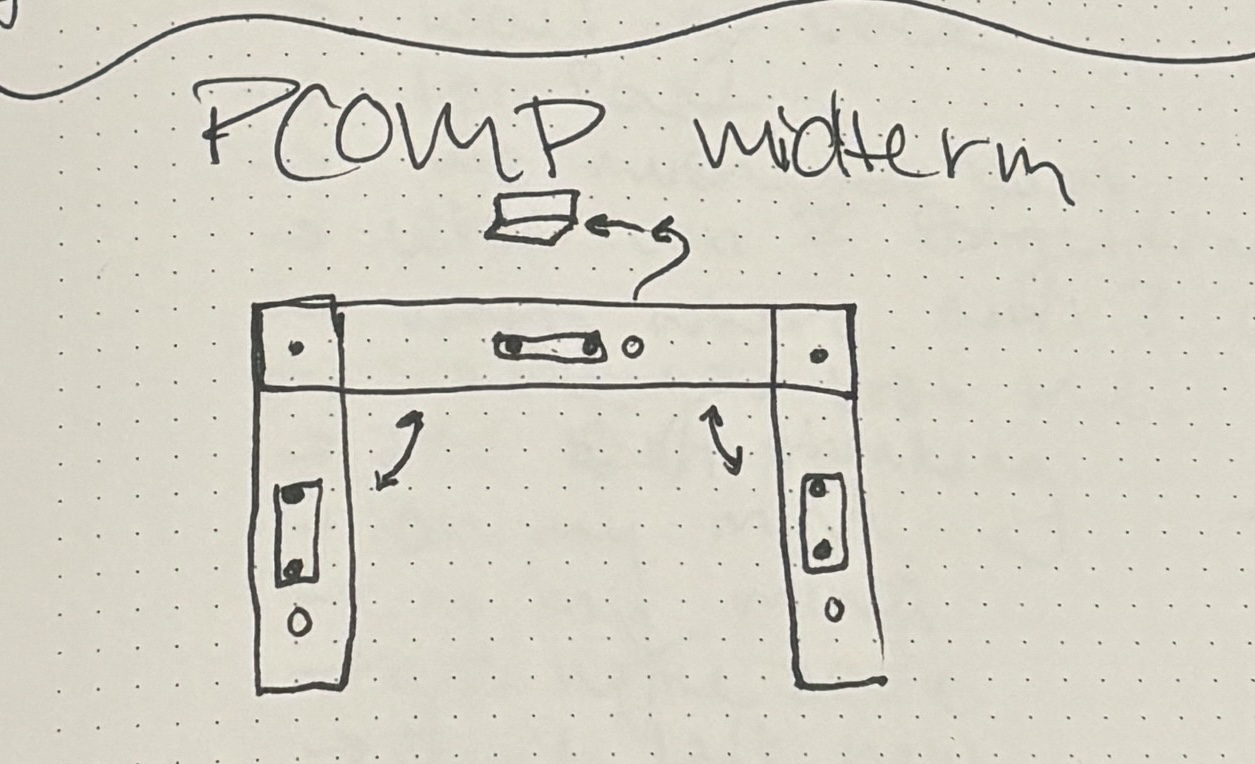 PCOMP midterm